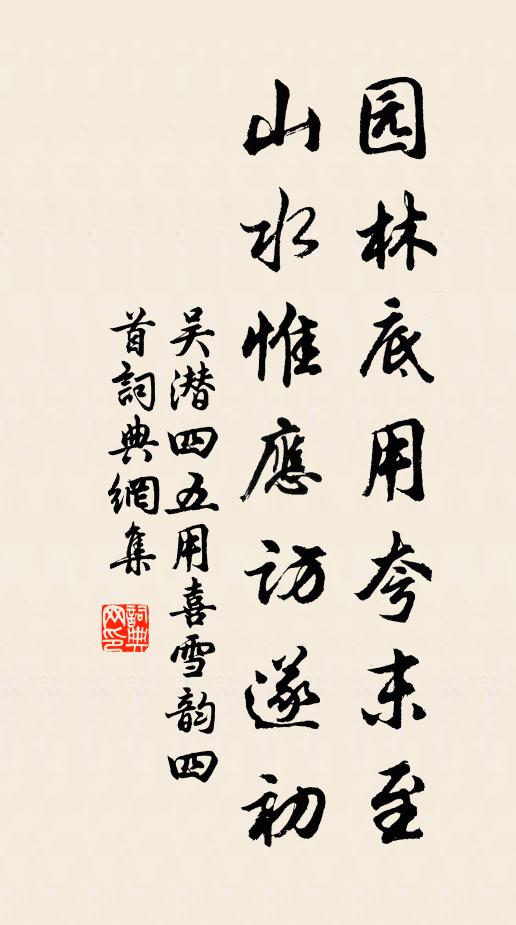 园林底用夸未至
山水惟應访遂初
吴潜四五用喜雪韵四
首詞典網集
詞典
网印